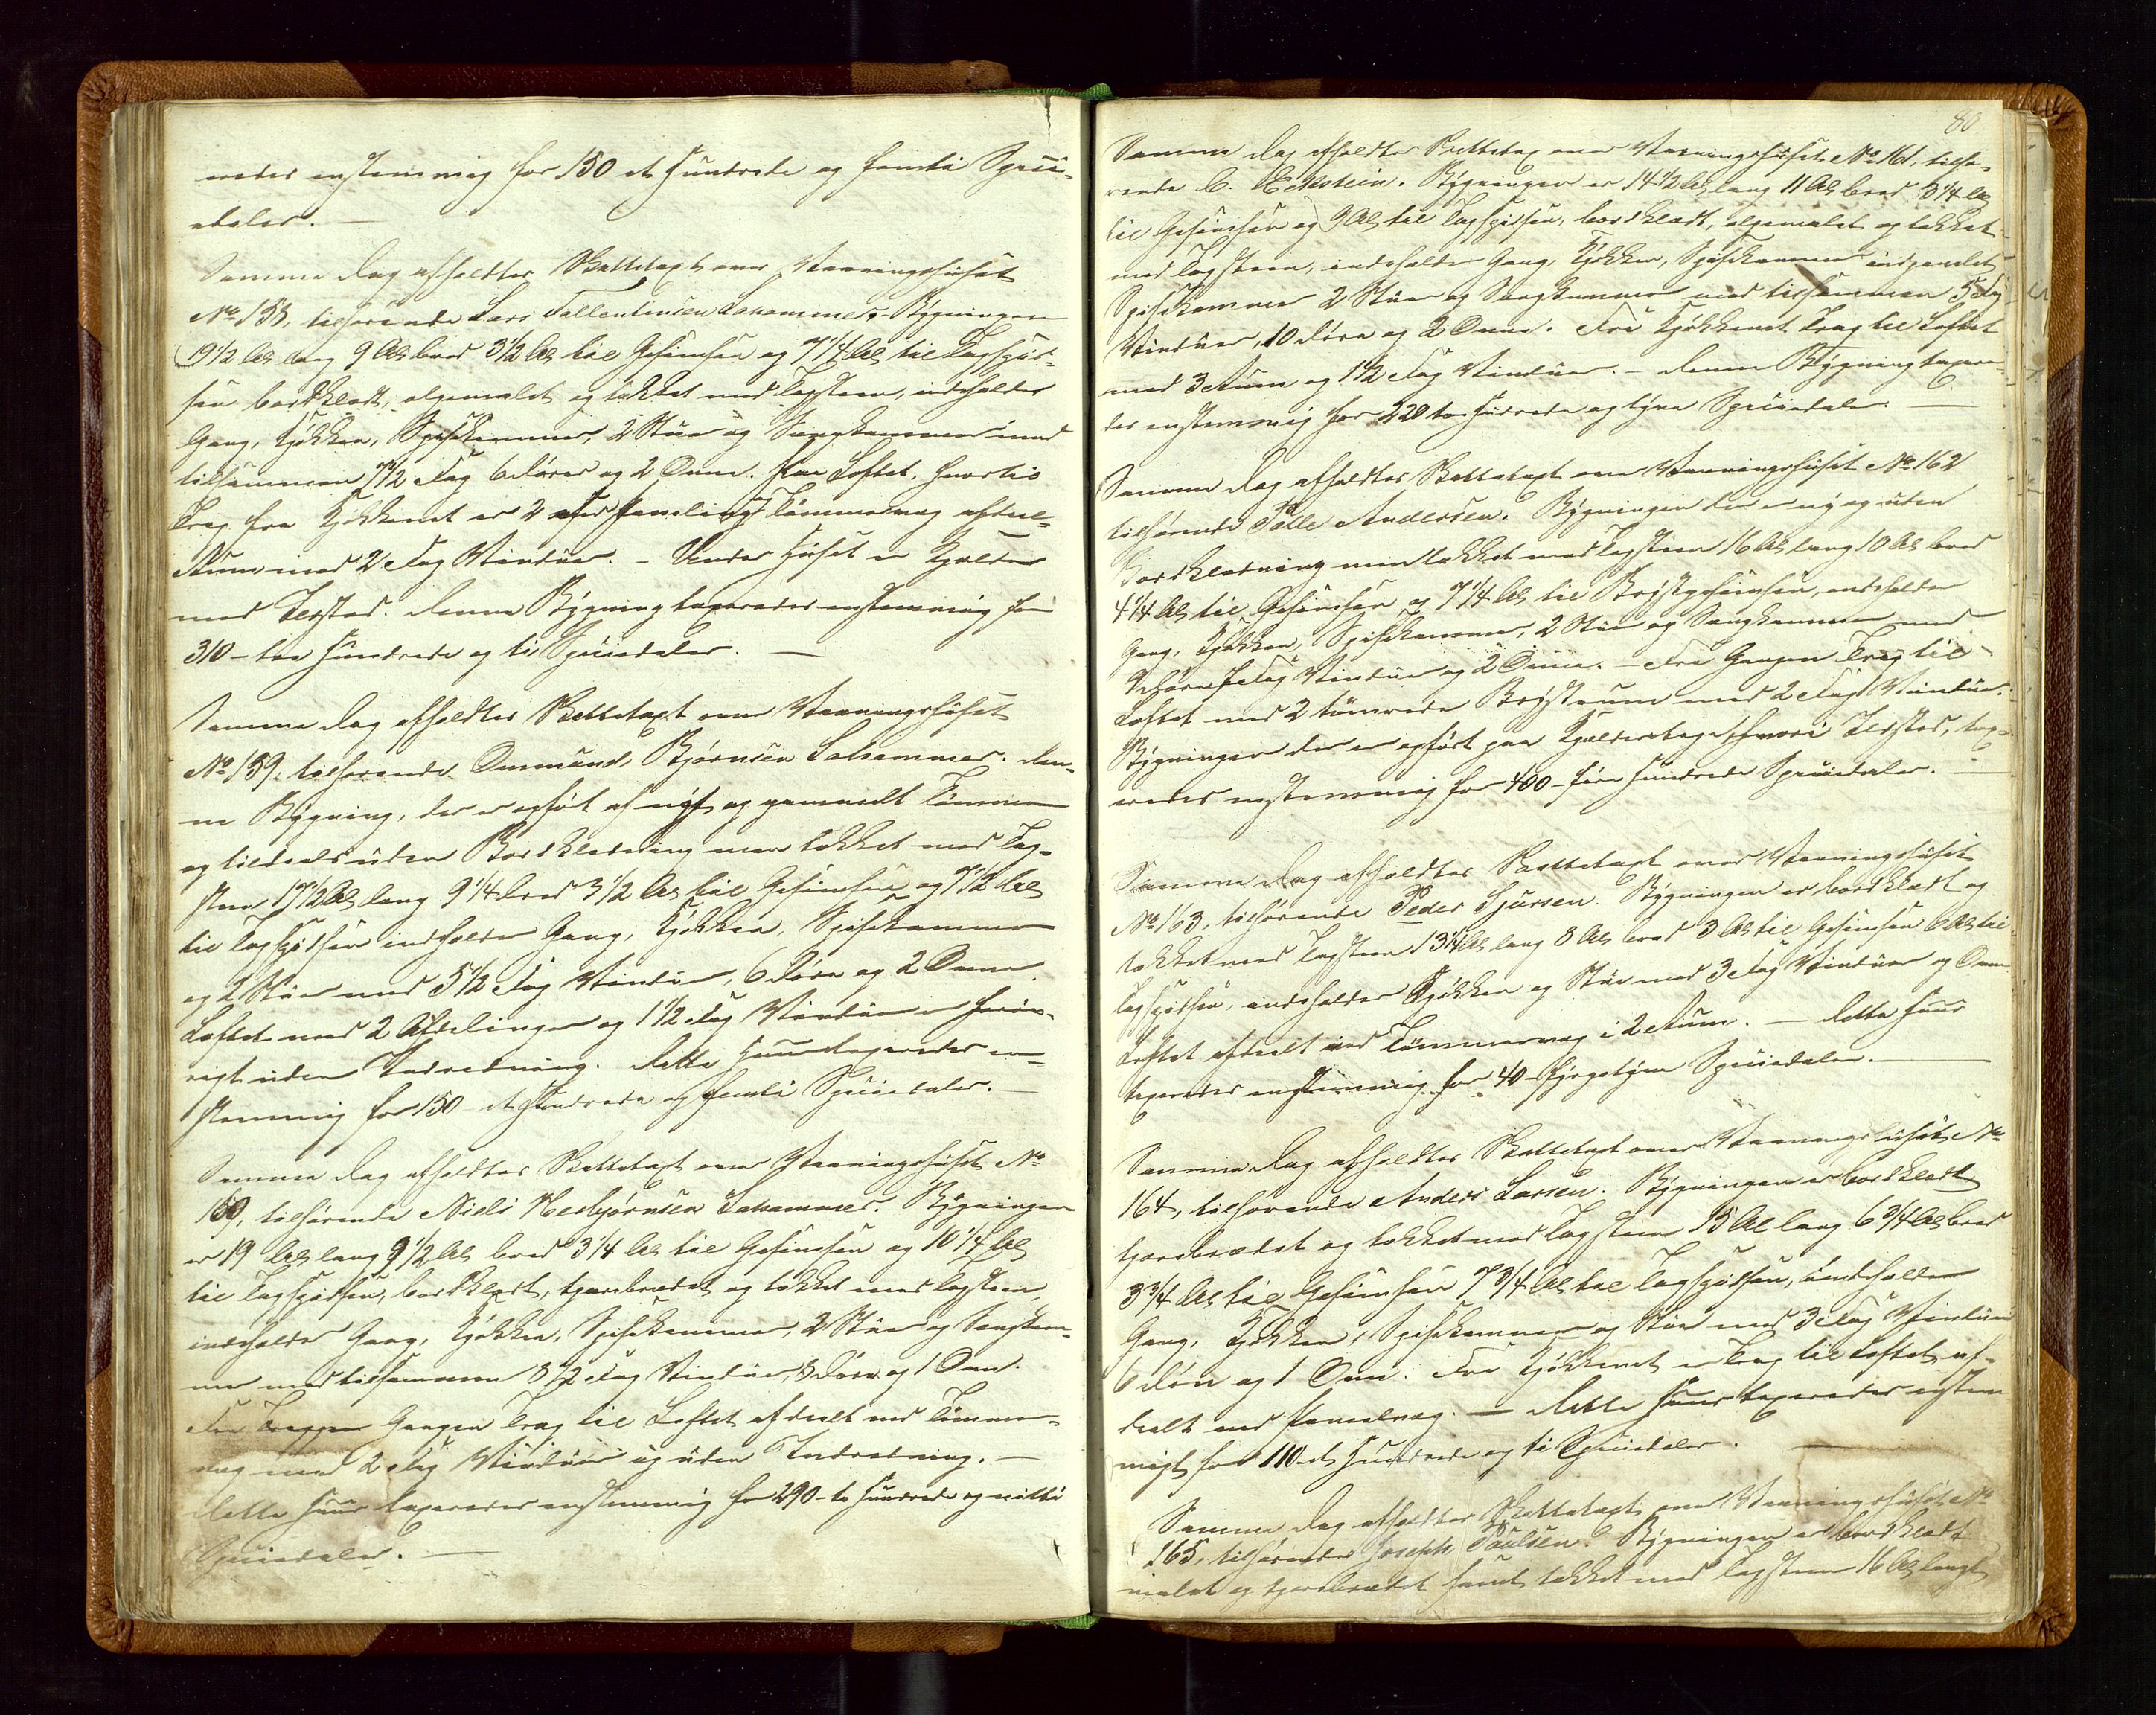 eredes enstemmig for 150 et Hundrede og femti Speci-
edaler. —
Samme Dag afholdtes Skattetaxt over Vaaningshuset
No 158, tilhørende Lars Tallentinsen Lahammer. Bygningen
19 1/2 Al lang 9 Al bred 3 1/2 Al til Gesimsen og 7 1/4 Al til Tagspid-
sen bordklædt, oljemalet og tækket med Tagsteen, indeholder
Gang, Kjøkken, Spisekammer, 2 Stuer og Sengkammer med
tilsammen 7 1/2 Fag 6 Døre og 2 Ovne. Paa Loftet, hvortil
Trap fra Kjøkkenet er 2 ved Paneling og Tømmervæg afdeel-
Rum med 2 Fag Vinduer. – Under Huset er Kjelder
med Ildsted. Denne Bygning taxeredes enstemmig for
310 – tre Hundrede og ti Speciedaler. —
Samme Dag afholdtes Skattetaxt over Vaaningshuset
No 159, tilhørende Osmund Bjørnsen Lahammer. Den-
ne Bygning, der er opført af nyt og gammelt Tømmer
og tildeels uden Bordklædning men tækket med Tag-
steen 17 1/2 Al lang 9 1/4 bred 3 1/2 Al til Gesimsen og 7 1/2 Al
til Tagspidsen indeholder Gang, Kjøkken, Spisekammer
og 2 Stuer med 5 1/2 Fag Vinduer, 6 Døre og 2 Ovne.
Loftet med 2 Afdelinger og 1 1/2 Fag Vinduer er forøv-
rigt uden Indredning. Dette Huus taxeredes en-
stemmig for 150 – et Hundrede og femti Speciedaler. —
Samme Dag afholdtes Skattetaxt over Vaaningshuset No
160, tilhørende Niels Asbjørnsen Lahammer. Bygningen
er 19 Al lang 9 1/2 Al bred 3 1/4 Al til Gesimsen og 10 1/4 Al
til Tagspidsen, bordklædt, tjærebrædet og tækket med Tagsteen,
indeholder Gang, Kjøkken, Spisekammer, 2 Stuer og Sengkam-
mer med tilsammen 8 1/2 Fag Vinduer, 8 Døre og 1 Ovn.
Fra Trappen Gangen Trap til Loftet afdeelt ved Tømmer-
væg med 2 Fag Vinduer og uden Indredning. —
Dette Huus taxeredes enstemmig for 290 – to Hundrede og nitti
Speciedaler. —
80
Samme Dag afholdtes Skattetax over Vaaningshuset No 161, tilhø-
rende C. Eckstein. Bygningen er 14 1/2 Al lang 11 Al bred 3 1/4 Al
til Gesimsen og 9 Al til Tagspidsen, bordklædt, oljemalet og tækket
med Tagsteen, indeholder Gang, Kjøkken, Spisekammer indpanelet
Spisekammer 2 Stuer og Sengkammer med tilsammen 5 Fag
Vinduer, 10 Døre og 2 Ovne. Fra Kjøkkenet Trap til Loftet
med 3 Rum og 1 1/2 Fag Vinduer. – Denne Bygning taxere-
des enstemmig for 220 to Hundrede og tyve Speciedaler. —
Samme Dag afholdtes Skattetaxt over Vaaningshuset No 162
tilhørende Tolle Andersen. Bygningen der er ny og uden
Bordklædning men tækket med Tagsteen 16 Al lang 10 Al bred
4 1/4 Al til Gesimsen og 7 1/4 Al til Brystgesimsen, indeholder
Gang, Kjøkken, Spisekammer, 2 Stuer og Sengkammer med
Fag Vinduer og 2 Ovne. – Fra Gangen Trap til
Loftet med 2 tømrede Brystrum med 2 Fag Vinduer.
Bygningen der er opført paa Kjelderetage hvori Ildsted, tax-
eredes enstemmig for 400 – fire Hundrede Speciedaler. —
Samme Dag afholdtes Skattetaxt over Vaaningshuset
No 163, tilhørende Peder Sjursen. Bygningen er bordklædt og
tækket med Tagsteen 13 1/4 Al lang 8 Al bred 3 Al til Gesimsen 6 Al til
Tagspidsen, indeholder Kjøkken og Stue med 3 Fag Vinduer og Ovn.
Loftet afdeelt ved Tømmervæg i 2 Rum. — Dette Huus
taxeredes enstemmig for 40 – fyrgetyve Speciedaler. —
Samme Dag afholdtes Skattetaxt over Vaaningshuset No
164, tilhørende Anders Larsen. Bygningen er bordklædt
tjærebrædet og tækket med Tagsteen 15 Al lang 6 3/4 Al bred
3 3/4 Al til Gesimsen 7 3/4 Al til Tagspidsen, indeholder
Gang, Kjøkken, Spisekammer og Stue med 3 Fag Vinduer
6 Døre og 1 Ovn. Fra Kjøkkenet er Trap til Loftet af-
deelt ved Panelvæg. — Dette Huus taxeredes enstem-
migt for 110 – et Hundrede og ti Speciedaler. —
Samme Dag afholdtes Skattetaxt over Vaaningshuset No
165, tilhørende Joseph Paulsen. Bygningen er bordklædt
malet og tjærebrædet samt tækket med Tagsteen 16 Al langt